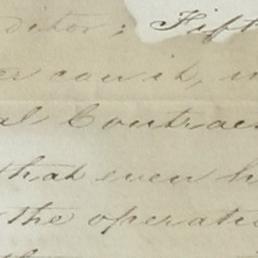 ditor; Fift
al Contrac
that even h
the operati